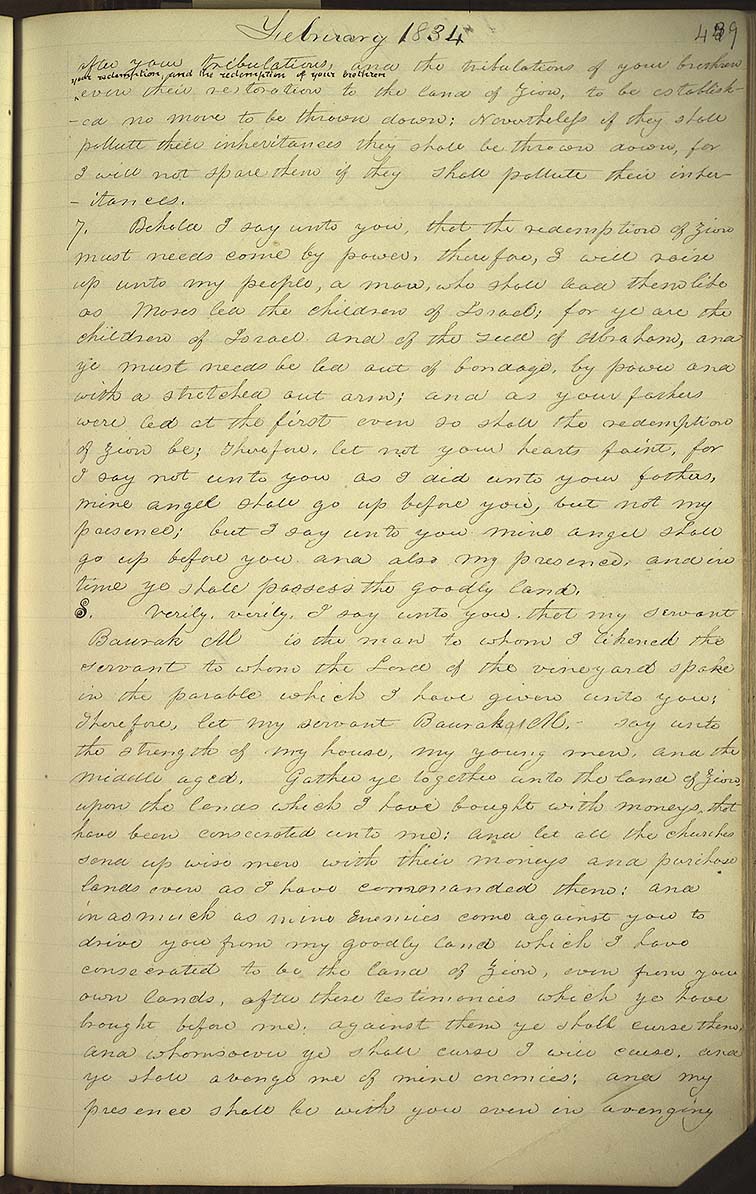 February 1834
439
after your tribulations, and the tribulations of your brethren
your redemption, and the redemption of your brethren
even their restoration to the land of Zion, to be establish-
-ed no more to be thrown down; Nevertheless if they shall
pollute their inheritances they shall be thrown down, for
I will not spare them if they shall pollute their inher-
-itances.
7. Behold I say unto you, that the redemption of Zion
must needs come by power, therefore, I will raise
up unto my people, a man, who shall lead them like
as Moses led the children of Israel; for ye are the
children of Israel and of the seed of Abraham, and
ye must needs be led out of bondage, by power and
with a stretched out arm; and as your fathers
were led at the first even so shall the redemption
of Zion be; Therefore, let not your hearts faint, for
I say not unto you as I did unto your fathers,
mine angel shall go up before you, but not my
presence; but I say unto you mine angel shall
go up before you and also my presence, and in
time ye shall possess the goodly land.
8. Verily, verily, I say unto you, that my servant
Baurak M is the man to whom I likened the
servant to whom the Lord of the vineyard spake
in the parable which I have given unto you;
Therefore, let my servant Baurak M,- say unto
the strength of my house, my young men, and the
middle aged, Gather ye together unto the land of Zion,
upon the lands which I have bought with moneys that
have been consecrated unto me: and let all the churches
send up wise men with their moneys and purchase
lands even as I have commanded them: and
inasmuch as mine Enemies come against you to
drive you from my goodly land which I have
consecrated to be the land of Zion, even from your
own lands, after these testimonies which ye have
brought before me, against them ye shall curse them,
and whomsoever ye shall curse I will curse, and
ye shall avenge me of mine enemies; and my
presence shall be with you even in avenging